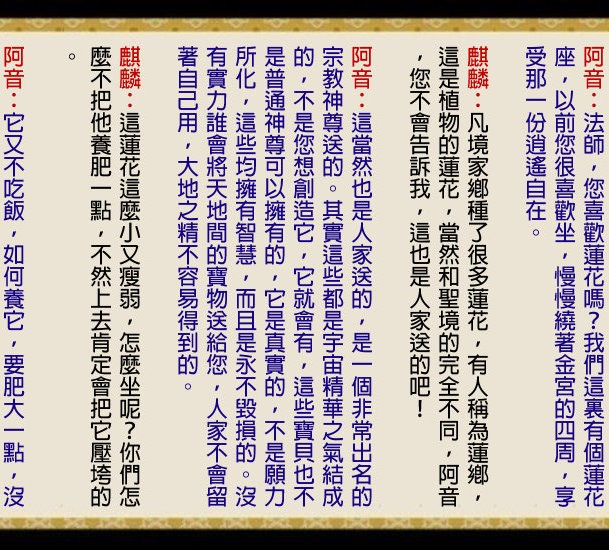 阿音：法師，您喜歡蓮花嗎？我們這裏有個蓮花
座，以前您很喜歡坐，慢慢繞著金宮的四周，享
受那一份逍遙自在。
麒麟：凡境家鄉種了很多蓮花，有人稱為蓮鄉，
這是植物的蓮花，當然和聖境的完全不同，阿音
，您不會告訴我，這也是人家送的吧！
阿音：這當然也是人家送的，是一個非常出名的
宗教神尊送的。其實這些都是宇宙精華之氣結成
的，不是您想創造它，它就會有，這些寶貝也不
是普通神尊可以擁有的，它是真實的，不是願力
所化，這些均擁有智慧，而且是永不毀損的。沒
有實力誰會將天地間的寶物送給您，人家不會留
著自己用，大地之精不容易得到的。
麒麟：這蓮花這麼小又瘦弱，怎麼坐呢？你們怎
麼不把他養肥一點，不然上去肯定會把它壓垮的
。
阿音：它又不吃飯，如何養它，要肥大一點，沒